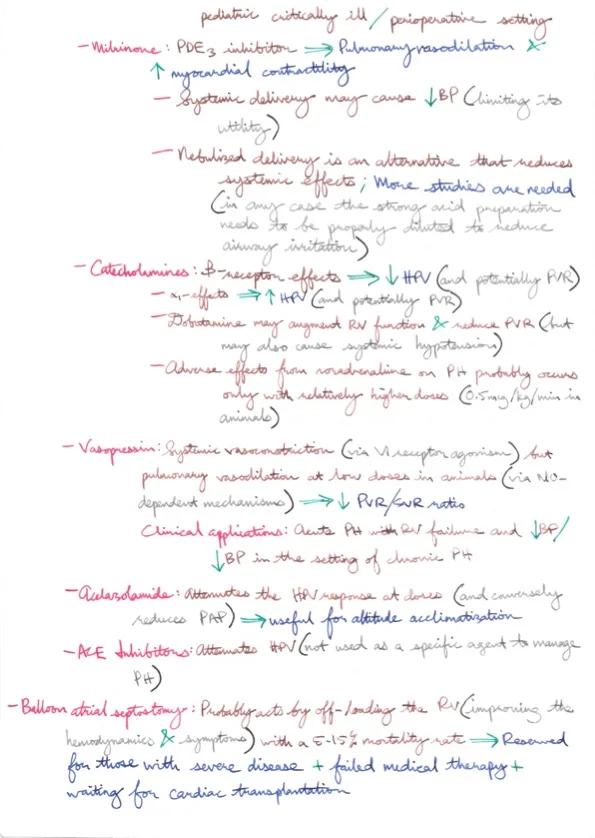 pediatric critically ill / perioperative setting
- Milrinone: PDE3 inhibitor ⇒ Pulmonary vasodilation &
↑ myocardial contractility
- Systemic delivery may cause ↓BP (limiting its
utility)
- Nebulized delivery is an alternative that reduces
systemic effects; More studies are needed
(in any case the strong acid preparation
needs to be properly diluted to reduce
airway irritation)
- Catecholamines: β-receptor effects ⇒ ↓ HPV (and potentially PVR)
- α1-effects ⇒ ↑ HPV (and potentially PVR)
- Dobutamine may augment RV function & reduce PVR (but
may also cause systemic hypotension)
- Adverse effects from noradrenaline on PH probably occurs
only with relatively higher doses (0.5mcg/kg/min in
animals)
- Vasopressin: Systemic vasoconstriction (via V1 receptor agonism) but
pulmonary vasodilation at low doses in animals (via NO-
dependent mechanisms) ⇒ ↓ PVR/SVR ratio
Clinical applications: Acute PH with RV failure and ↓BP/
↓BP in the setting of chronic PH
- Acetazolamide: Attenuates the HPV response at doses (and conversely
reduces PAP) ⇒ useful for altitude acclimatization
- ACE Inhibitors: Attenuates HPV (not used as a specific agent to manage
PH)
- Balloon atrial septostomy: Probably acts by off-loading the RV (improving the
hemodynamics & symptoms) with a 5-15% mortality rate ⇒ Reserved
for those with severe disease + failed medical therapy +
waiting for cardiac transplantation